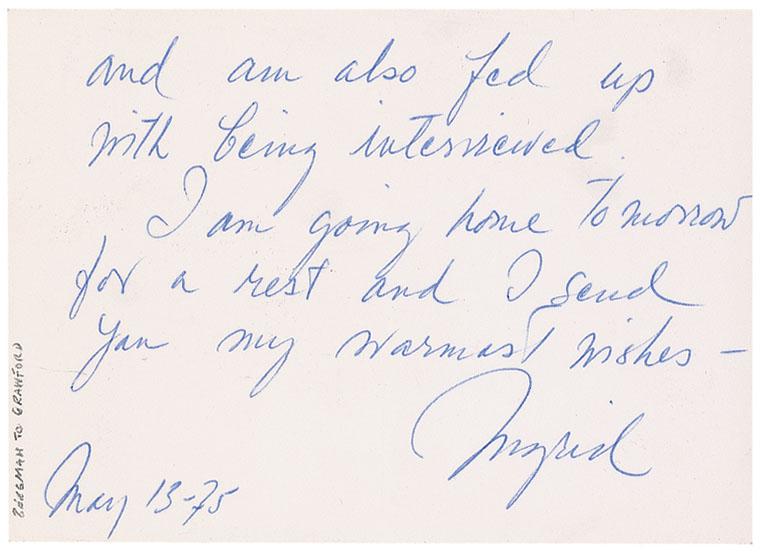 and am also fed up
with being interviewed.
I am going home tomorrow
for a rest and I send
you my warmest wishes –
Ingrid
May 13-75
BERGMAN TO CRAWFORD